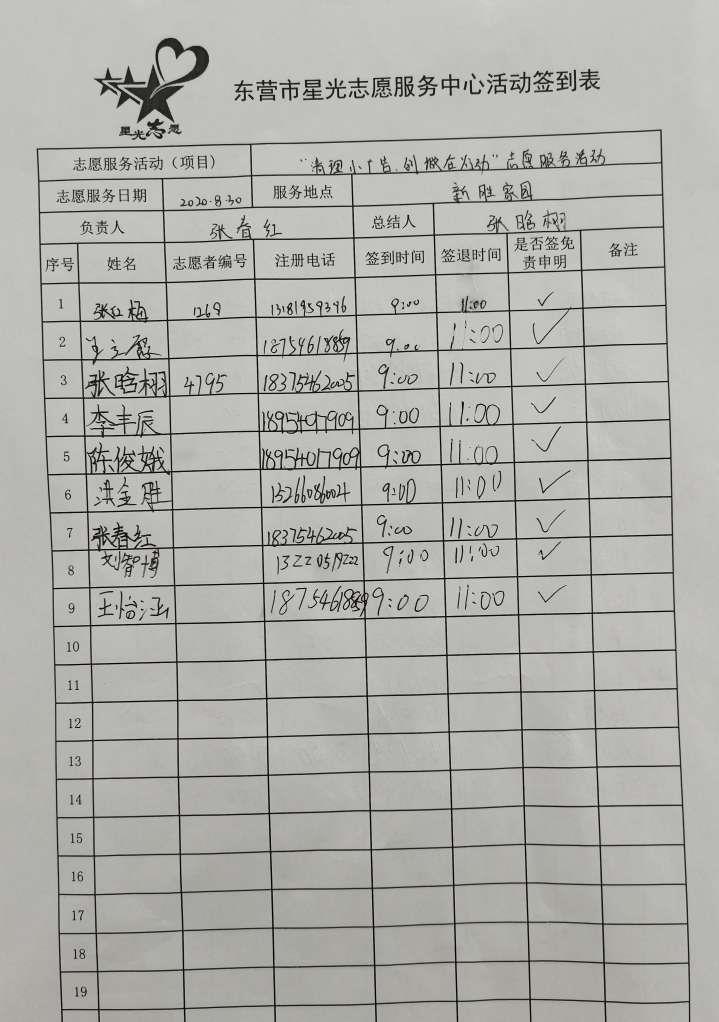 星光志愿
东营市星光志愿服务中心活动签到表
志愿服务活动（项目） "清理小广告,创城在行动"志愿服务活动
志愿服务日期 2020.8.30 服务地点 新胜家园
负责人 张春红 总结人 张晗栩
序号 姓名 志愿者编号 注册电话 签到时间 签退时间 是否签免责申明 备注
1 张红梅 1269 13181959396 9:00 11:00 ✓
2 18754618859 9:00 11:00 ✓
3 张晗栩 4795 18375462005 9:00 11:00 ✓
4 李丰辰 18954017909 9:00 11:00 ✓
5 陈俊娥 18954017909 9:00 11:00 ✓
6 洪金胜 13266086004 9:00 11:00 ✓
7 张春红 18375462005 9:00 11:00 ✓
8 刘智博 9:00 11:00 ✓
9 王怡涵 18754618859 9:00 11:00 ✓
10
11
12
13
14
15
16
17
18
19